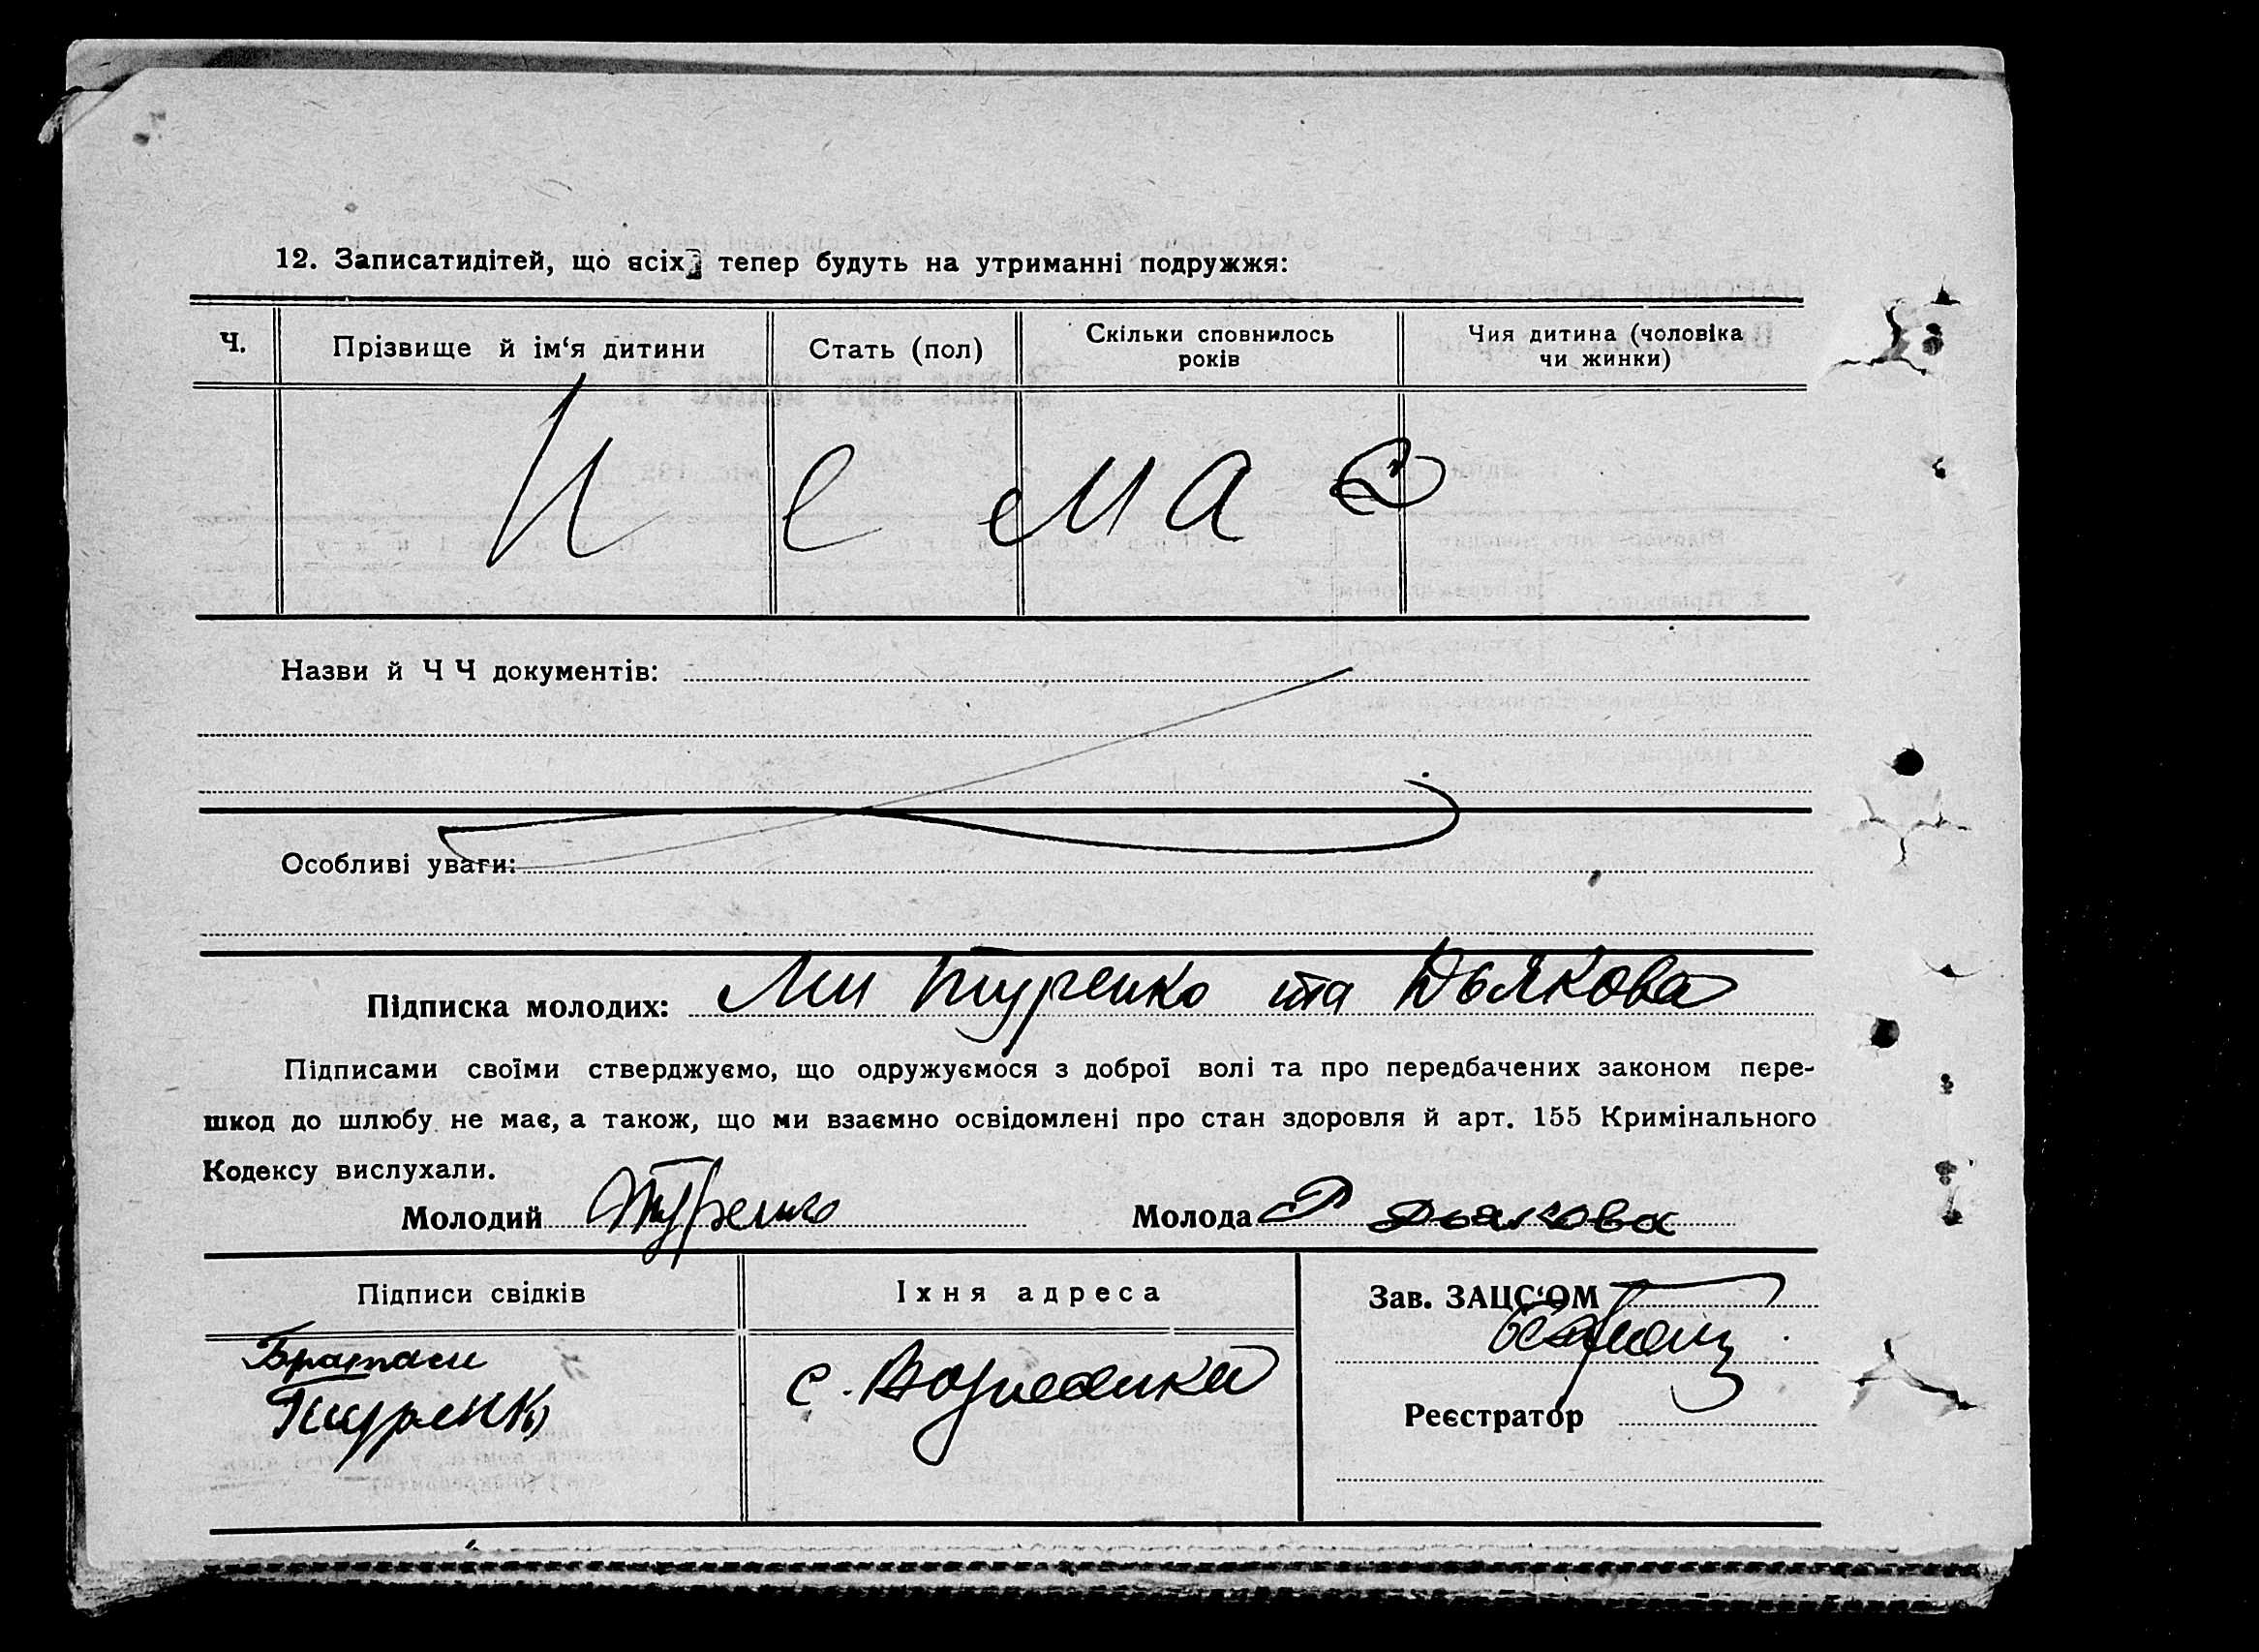 12. Записатидітей, що всіх тепер будуть на утриманні подружжя:
Ч.
Прізвище й ім‘я дитини
Стать (пол)
Скільки сповнилось
років
Чия дитина (чоловіка
чи жинки)
Н е м а є
Назви й Ч Ч документів:
Особливі уваги:
Підписка молодих: Ми Туренко та Дьякова
Підписами своїми стверджуємо, що одружуємося з доброї волі та про передбачених законом пере-
шкод до шлюбу не має, а також, що ми взаємно освідомлені про стан здоровля й арт. 155 Кримінального
Кодексу вислухали.
Молодий Туренко Молода Дьякова
Підписи свідків
Їхня адреса
Зав. ЗАЦС‘ОМ
Туренко
с.
Реєстратор